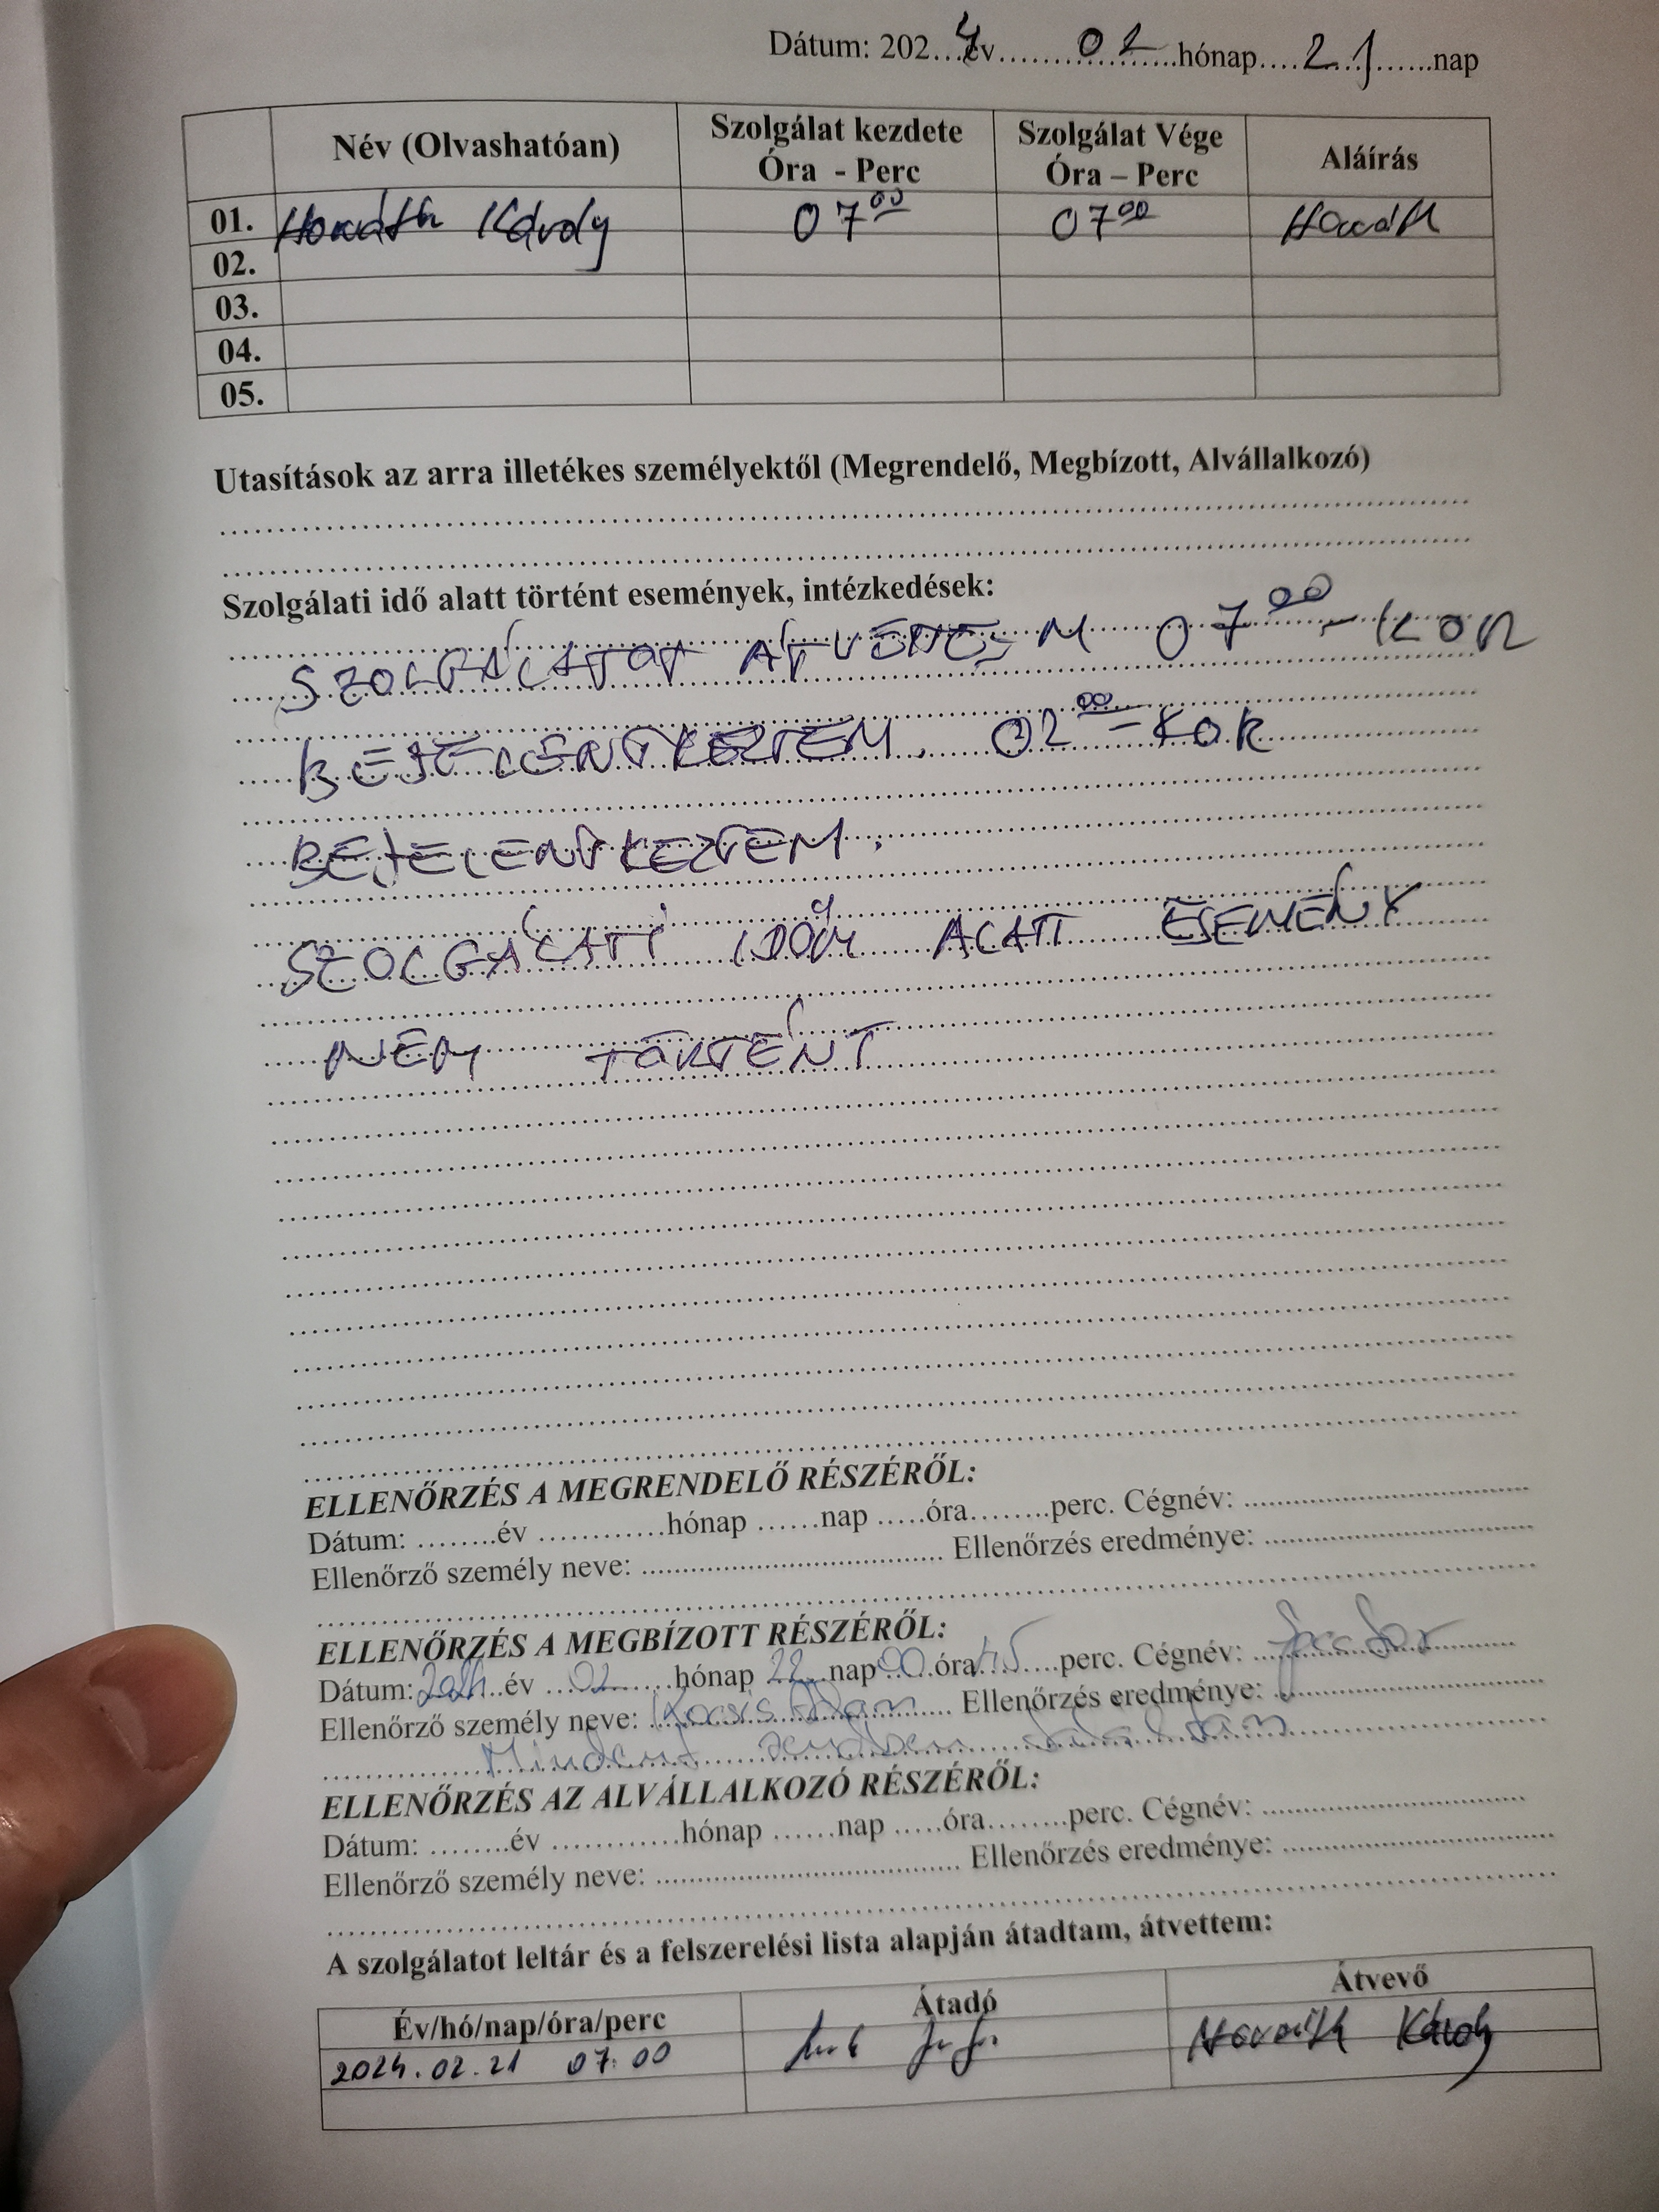 Dátum: 2024 év 02 hónap 21 nap
Név (Olvashatóan) Szolgálat kezdete Óra - Perc Szolgálat Vége Óra – Perc Aláírás
01. Horváth Károly 07 00 07 00 Horváth
02.
03.
04.
05.
Utasítások az arra illetékes személyektől (Megrendelő, Megbízott, Alvállalkozó)
Szolgálati idő alatt történt események, intézkedések:
SZOLGÁLATOT 07 00 - KOR
BEJELENTKEZTEM. 02 00 - KOR
BEJELENTKEZTEM.
SZOLGÁLATI IDŐM ALATT ESEMÉNY
NEM TÖRTÉNT
ELLENŐRZÉS A MEGRENDELŐ RÉSZÉRŐL:
Dátum: ........év ............hónap ......nap .....óra........perc. Cégnév: ..............................
Ellenőrző személy neve: ................................ Ellenőrzés eredménye: ..............................
ELLENŐRZÉS A MEGBÍZOTT RÉSZÉRŐL:
Dátum: 2024 év 02 hónap 22 nap 00 óra 45 perc. Cégnév:
Ellenőrző személy neve: Ellenőrzés eredménye:
Mindent rendben találtam
ELLENŐRZÉS AZ ALVÁLLALKOZÓ RÉSZÉRŐL:
Dátum: ........év ............hónap ......nap .....óra........perc. Cégnév: ..............................
Ellenőrző személy neve: ................................ Ellenőrzés eredménye: ..............................
A szolgálatot leltár és a felszerelési lista alapján átadtam, átvettem:
Év/hó/nap/óra/perc Átadó Átvevő
2024.02.21 07:00 Horváth Károly